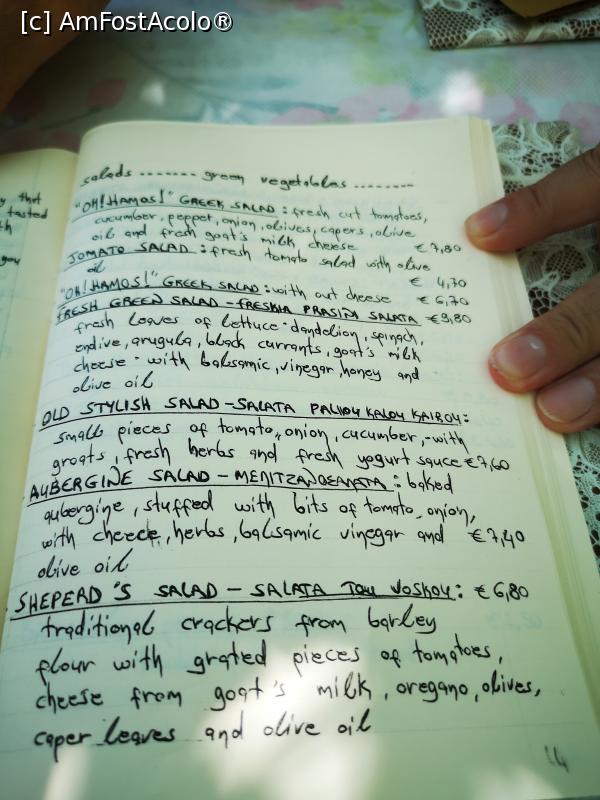 [c] AmFostAcolo®
y that
tasted
th
you
salads ........ green vegetables ........
"OH! HAMOS!" GREEK SALAD : fresh cut tomatoes,
cucumber, pepper, onion, olives, capers, olive
oil and fresh goat's milk cheese € 7,80
TOMATO SALAD : fresh tomato salad with olive
oil € 4,70
"OH! HAMOS!" GREEK SALAD : with out cheese € 6,70
FRESH GREEN SALAD - FRESKIA PRASINI SALATA €9,80
fresh leaves of lettuce - dandelion, spinach,
endive, arugula, black currants, goat's milk
cheese - with balsamic, vinegar, honey and
olive oil
OLD STYLISH SALAD - SALATA PALIOU KALOU KAIROU:
small pieces of tomato, onion, cucumber, - with
groats, fresh herbs and fresh yogurt sauce €7,60
AUBERGINE SALAD - : baked
aubergine, stuffed with bits of tomato, onion,
with cheese, herbs, balsamic vinegar and € 7,40
olive oil
SHEPERD'S SALAD - SALATA TOU VOSKOU: € 6,80
traditional crackers from barley
flour with grated pieces of tomatoes,
cheese from goat's milk, oregano, olives,
caper leaves and olive oil
14